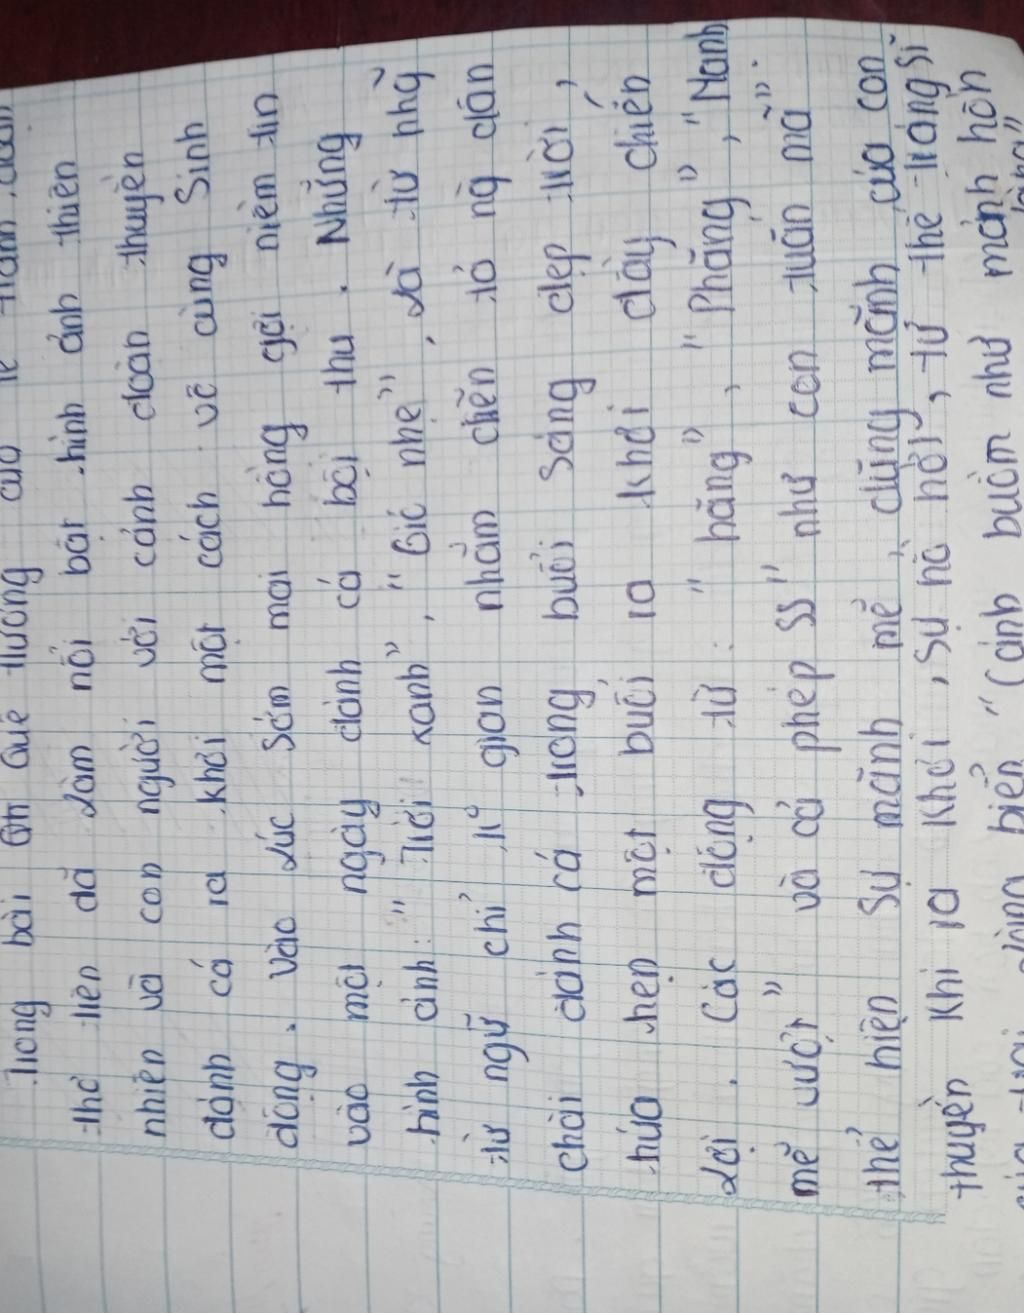 Trong bài thơ Quê Hương của Tế
thơ trên đã làm nổi bật hình ảnh thiên
nhiên và con người với cảnh đoàn thuyền
đánh cá ra khơi một cách vẽ cùng Sinh
động. vào lúc Sớm mai hồng gợi niềm tin
vào một ngày đánh cá bội thu. Những
hình ảnh: "Trời xanh", "Gió nhẹ", là từ nhữ
từ ngữ chỉ tr° gian nhằm chến tỏ ng dân
chài đánh cá trong buổi Sáng đẹp trời,
hứa hẹn một buổi ra khơi đầy chiến
lợi. Các động từ: "hăng", "Phăng", "Manh
mẽ vượt" và cả phép SS "như con tuấn mã".
thể hiện Sự mãnh mẽ, dũng mãnh của con
thuyền khi ra khơi, Sự hồ hởi, tư thế tráng sĩ
biển "Cánh buồm như mảnh hồn